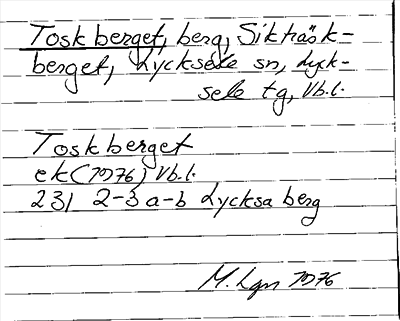 Toskberget, berg, Sikträsk-
berget, Lycksele sn, Lyck-
sele tg, Vb.l.
Toskberget
ek (1976) Vb.l.
231 2-3 a-b Lycksaberg
M. Lgn 1976